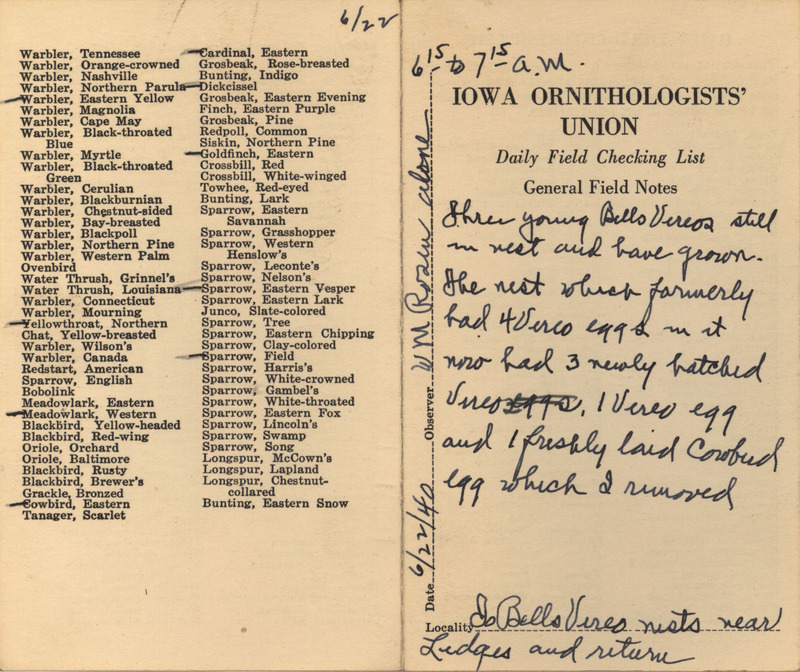 6/22
Warbler, Tennessee
Warbler, Orange-crowned
Warbler, Nashville
Warbler, Northern Parula
Warbler, Eastern Yellow
Warbler, Magnolia
Warbler, Cape May
Warbler, Black-throated
Blue
Warbler, Myrtle
Warbler, Black-throated
Green
Warbler, Cerulian
Warbler, Blackburnian
Warbler, Chestnut-sided
Warbler, Bay-breasted
Warbler, Blackpoll
Warbler, Northern Pine
Warbler, Western Palm
Ovenbird
Water Thrush, Grinnel's
Water Thrush, Louisiana
Warbler, Connecticut
Warbler, Mourning
Yellowthroat, Northern
Chat, Yellow-breasted
Warbler, Wilson's
Warbler, Canada
Redstart, American
Sparrow, English
Bobolink
Meadowlark, Eastern
Meadowlark, Western
Blackbird, Yellow-headed
Blackbird, Red-wing
Oriole, Orchard
Oriole, Baltimore
Blackbird, Rusty
Blackbird, Brewer's
Grackle, Bronzed
Cowbird, Eastern
Tanager, Scarlet
Cardinal, Eastern
Grosbeak, Rose-breasted
Bunting, Indigo
Dickcissel
Grosbeak, Eastern Evening
Finch, Eastern Purple
Grosbeak, Pine
Redpoll, Common
Siskin, Northern Pine
Goldfinch, Eastern
Crossbill, Red
Crossbill, White-winged
Towhee, Red-eyed
Bunting, Lark
Sparrow, Eastern
Savannah
Sparrow, Grasshopper
Sparrow, Western
Henslow's
Sparrow, Leconte's
Sparrow, Nelson's
Sparrow, Eastern Vesper
Sparrow, Eastern Lark
Junco, Slate-colored
Sparrow, Tree
Sparrow, Eastern Chipping
Sparrow, Clay-colored
Sparrow, Field
Sparrow, Harris's
Sparrow, White-crowned
Sparrow, Gambel's
Sparrow, White-throated
Sparrow, Eastern Fox
Sparrow, Lincoln's
Sparrow, Swamp
Sparrow, Song
Longspur, McCown's
Longspur, Lapland
Longspur, Chestnut-
collared
Bunting, Eastern Snow
6 15 to 7 15 A.M.
IOWA ORNITHOLOGISTS'
UNION
Daily Field Checking List
General Field Notes
Three young Bells Vireos still
in nest and have grown.
The nest which formerly
had 4 Vireo eggs in it
now had 3 newly hatched
Vireo eggs, 1 Vireo egg
and 1 freshly laid Cowbird
egg which I removed
Date 6/22/40 Observer W M Rosen alone
Locality To Bells Vireo nests near
Ledges and return